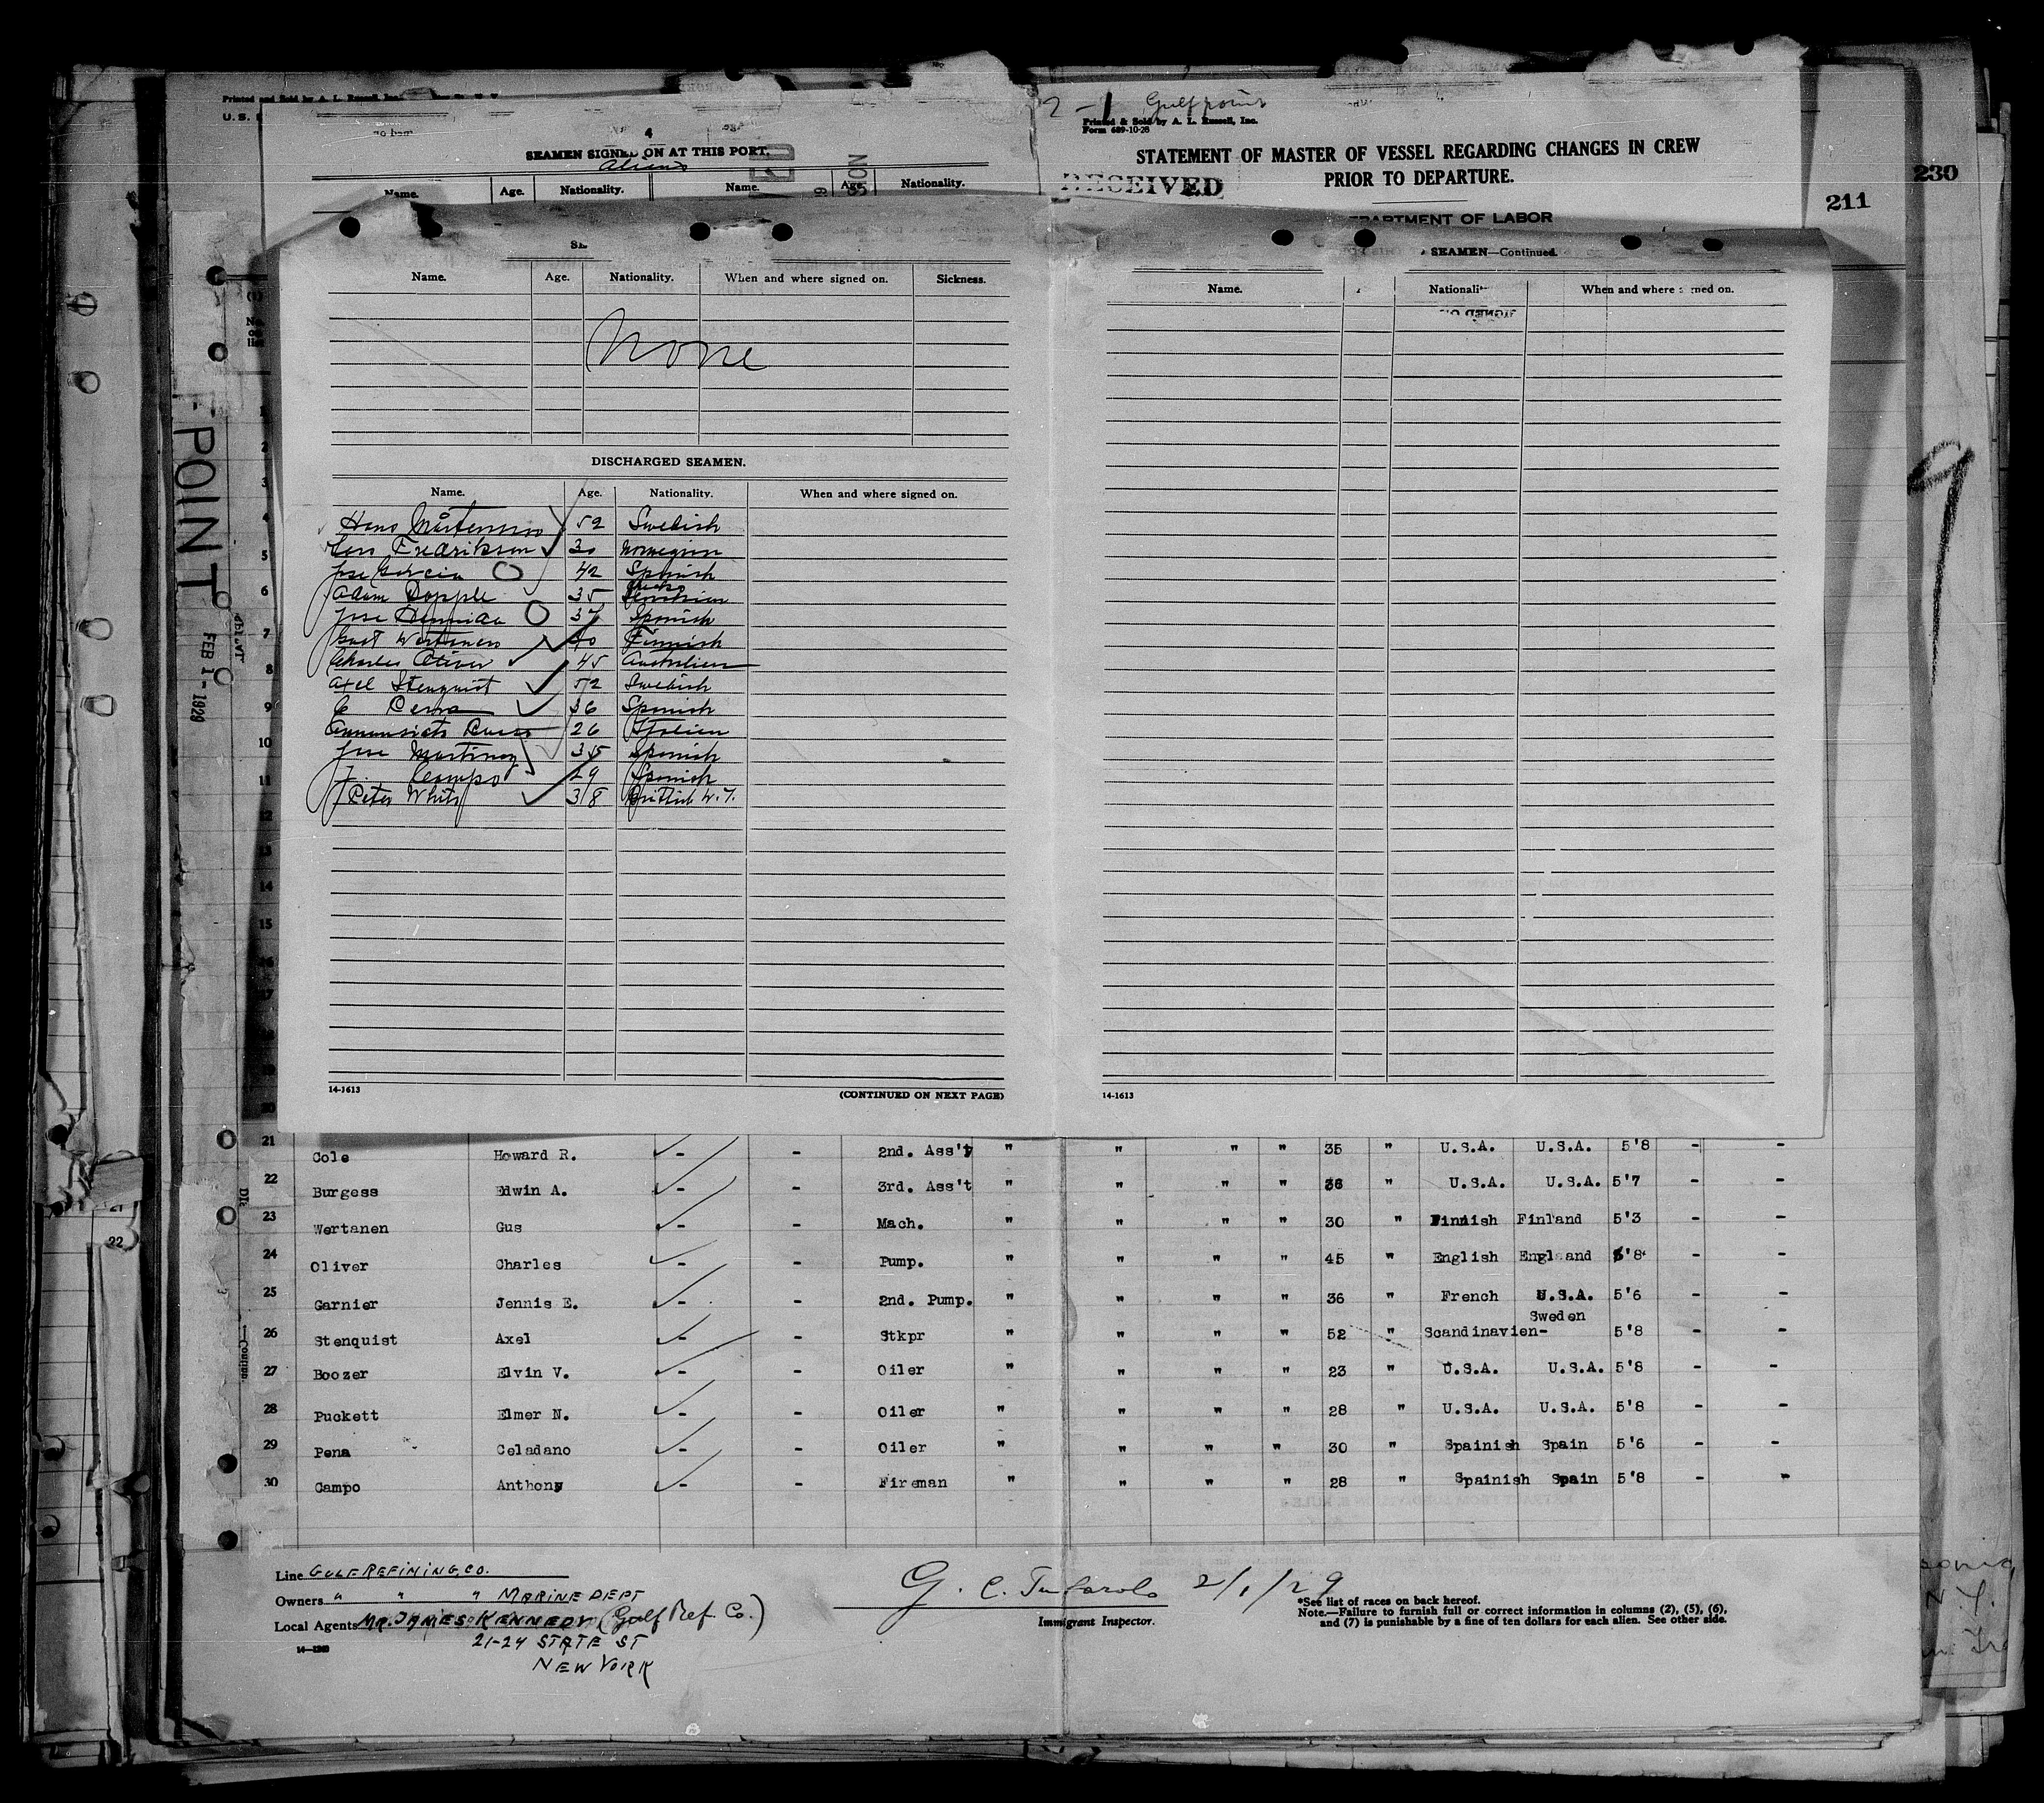 Printed and Sold by A. L. Russell, Inc.
U. S.
4
SEAMEN SIGNED ON AT THIS PORT.
Aliens
Name. Age. Nationality. Name. Age. Nationality.
2-1 Gulfpoint
Printed & Sold by A. L. Russell, Inc.
Form 689-10-28
STATEMENT OF MASTER OF VESSEL REGARDING CHANGES IN CREW
PRIOR TO DEPARTURE.
RECEIVED
DEPARTMENT OF LABOR
211
230
9
POINT
FEB 1 - 1929
Name. Age. Nationality. When and where signed on. Sickness.
None
DISCHARGED SEAMEN.
Name. Age. Nationality. When and where signed on.
Hans Mårtensson 52 Swedish
Fredriksen 30 Norwegian
Jose Garcia 42 Spanish
Adam 35
Jose 37 Spanish
Gust Wertanen 40 Finnish
Charles Oliver 45 Australien
Axel Stenquist 52 Swedish
C Pena 36 Spanish
26 Italien
Jose Martinez 35 Spanish
J. Campo 29 Spanish
Peter White 38 British W. I.
14-1613
(CONTINUED ON NEXT PAGE)
SEAMEN—Continued.
Name. Nationality When and where signed on.
14-1613
21 Cole Howard R. - - 2nd. Ass't " " " " 35 " U.S.A. U.S.A. 5'8 - -
22 Burgess Edwin A. - - 3rd. Ass't " " " " 36 " U.S.A. U.S.A. 5'7 - -
23 Wertanen Gus - - Mach. " " " " 30 " Finnish Finland 5'3 - -
24 Oliver Charles - - Pump. " " " " 45 " English England 5'8 - -
25 Garnier Jennis E. - - 2nd. Pump. " " " " 36 " French U.S.A. 5'6 - -
Sweden
26 Stenquist Axel - - Stkpr " " " " 52 " Scandinavien- 5'8 - -
27 Boozer Elvin V. - - Oiler " " " " 23 " U.S.A. U.S.A. 5'8 - -
28 Puckett Elmer N. - - Oiler " " " " 28 " U.S.A. U.S.A. 5'8 - -
29 Pena Celadano - - Oiler " " " " 30 " Spainish Spain 5'6 - -
30 Campo Anthony - - Fireman " " " " 28 " Spainish Spain 5'8 - "
Line GULF REFINING, CO.
Owners " " " MARINE DEPT
Local Agents MR. JAMES KENNEDY (Gulf Ref. Co.)
21-24 STATE ST
NEW YORK
G. C. 2/1/29
Immigrant Inspector.
*See list of races on back hereof.
Note.—Failure to furnish full or correct information in columns (2), (5), (6),
and (7) is punishable by a fine of ten dollars for each alien. See other side.